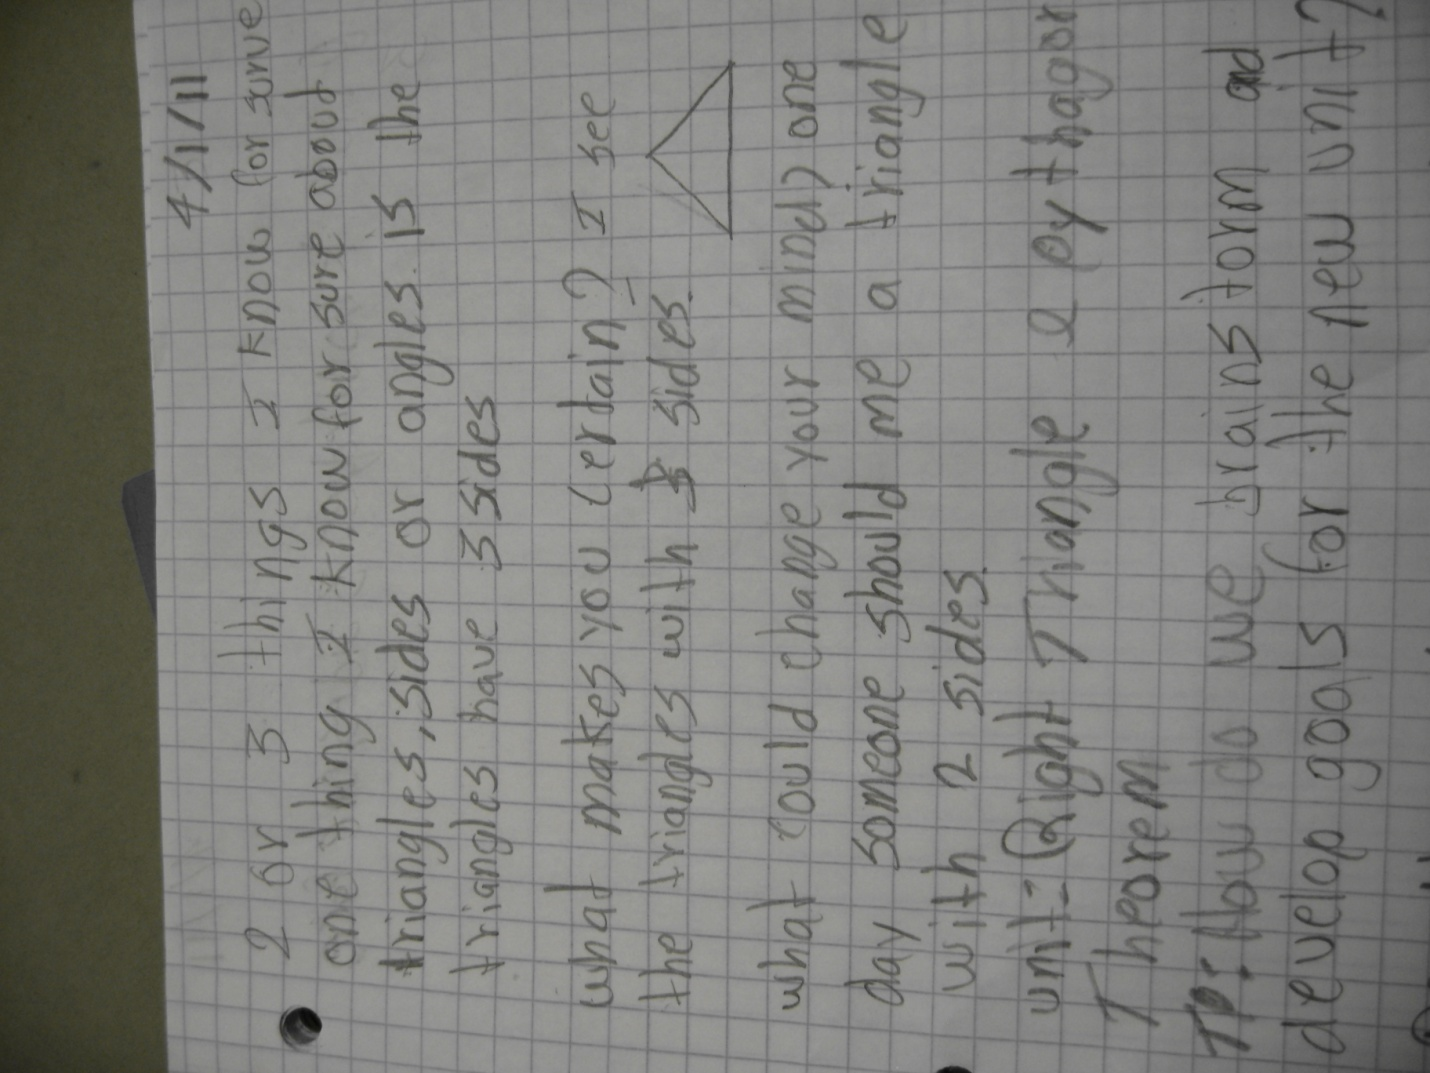 4/1/11
2 or 3 things I know for surve
one thing I know for sure about
triangles, sides or angles. is the
triangles have 3 sides
what makes you certain? I see
the triangles with 3 sides.
what could change your mind? one
day someone should me a triangle
with 2 sides.
unit: Right Triangle & pythagor
Theorem
TP: How do we brainstorm and
develop goals for the new unit?